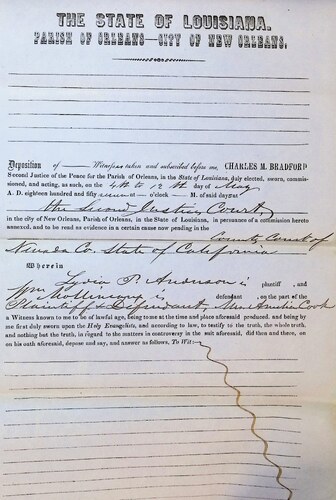 THE STATE OF LOUISIANA.
PARISH OF ORLEANS—CITY OF NEW ORLEANS.
Deposition of — Witnesses taken and subscribed before me, CHARLES M. BRADFORD
Second Justice of the Peace for the Parish of Orleans, in the State of Louisiana, duly elected, sworn, commis-
sioned, and acting, as such, on the 4th to 12th day of May
A. D. eighteen hundred and fifty at — o'clock — M. of said day at
the Second Justice Court,
in the city of New Orleans, Parish of Orleans, in the State of Louisiana, in persuance of a commission hereto
annexed, and to be read as evidence in a certain cause now pending in the
County Court of
Nevada Co. State of California
Wherein
Lydia P. Anderson is plaintiff , and
Wm is defendant , on the part of the
Defendant, Cook
a Witness known to me to be of lawful age, being to me at the time and place aforesaid produced, and being by
me first duly sworn upon the Holy Evangelists, and according to law, to testify to the truth, the whole truth,
and nothing but the truth, in regard to the matters in controversy in the suit aforesaid, did then and there, on
on his oath aforesaid, depose and say, and answer as follows, To Wit: